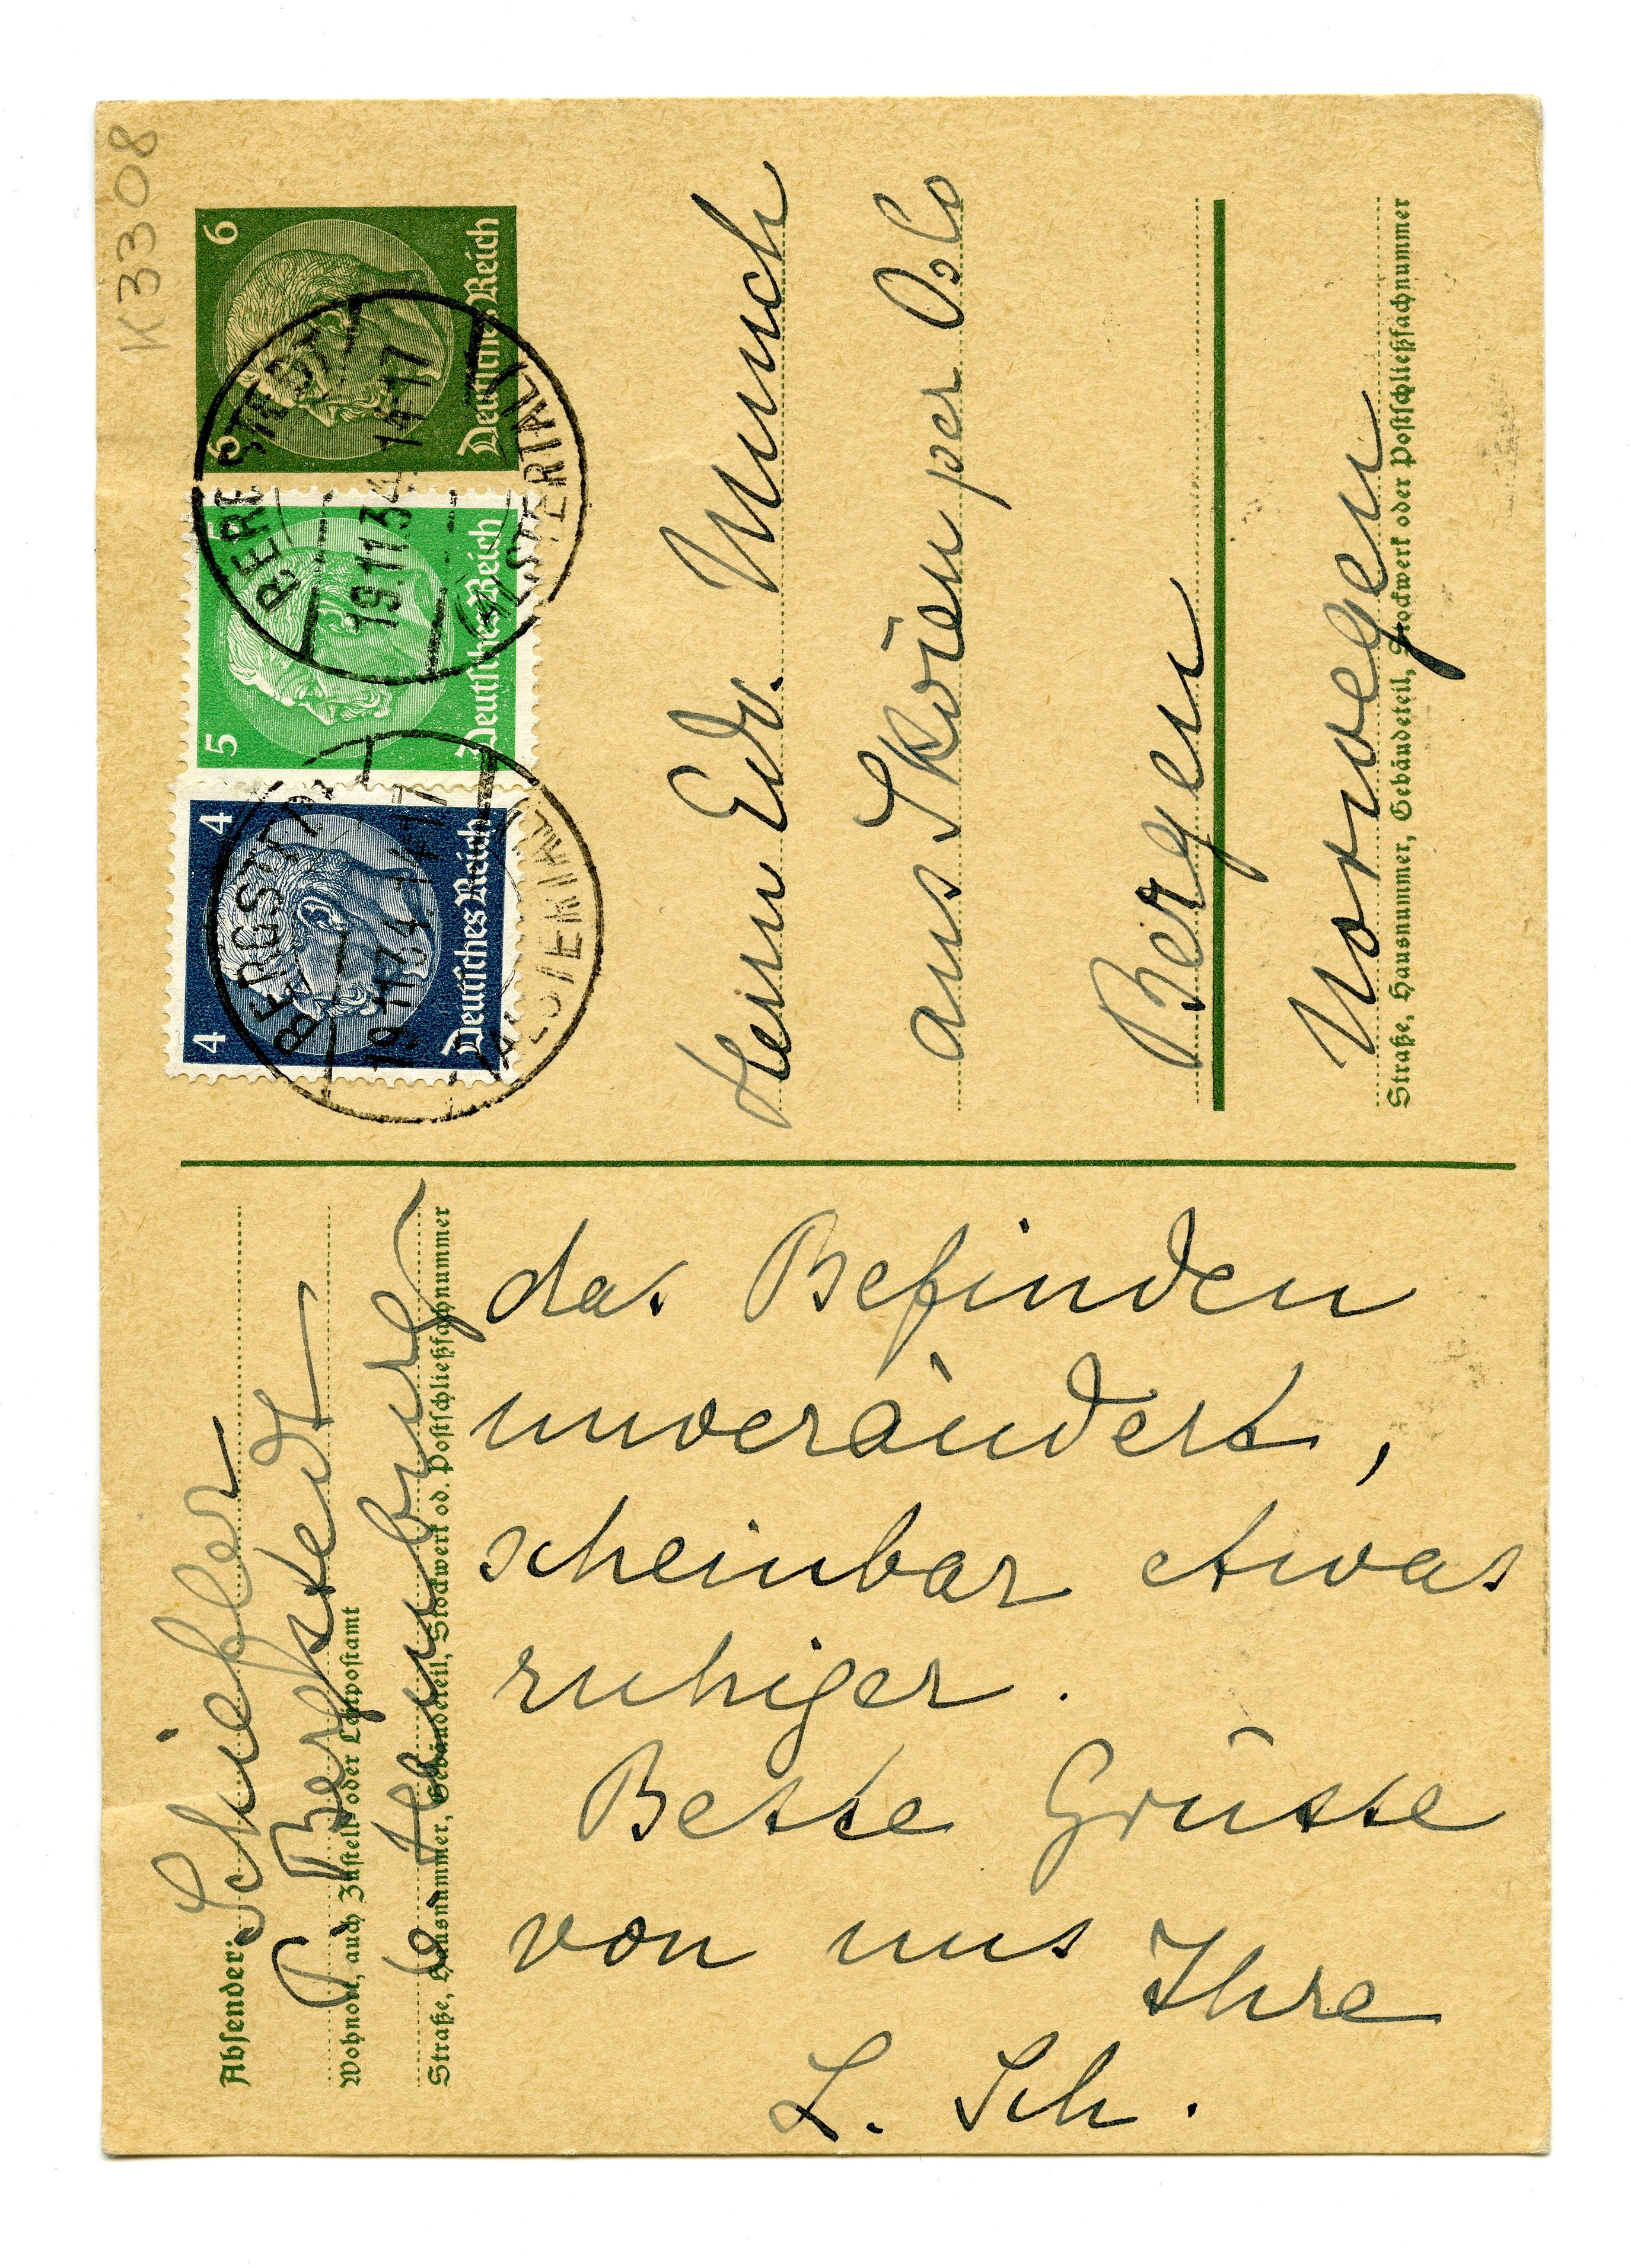 K3308
6 6
Deutsches Reich
5 5
Deutsches Reich
4 4
Deutsches Reich
BERGSTEDT
19.11.34. 14-17
BERGSTEDT
19.11.34. 14-17
Herrn Edv. Munch
aus Skøien per Oslo
Bergen
Norwegen
Straße, Hausnummer, Gebäudeteil, Stockwerk oder Postschließfachnummer
Absender: Schiefler
Bergstedt
Wohnort, auch Zustell- oder Leitpostamt
b Hamburg
Straße, Hausnummer, Gebäudeteil, Stockwerk od. Postschließfachnummer
das Befinden
unverändert,
scheinbar etwas
ruhiger.
Beste Grüsse
von uns Ihre
L. Sch.